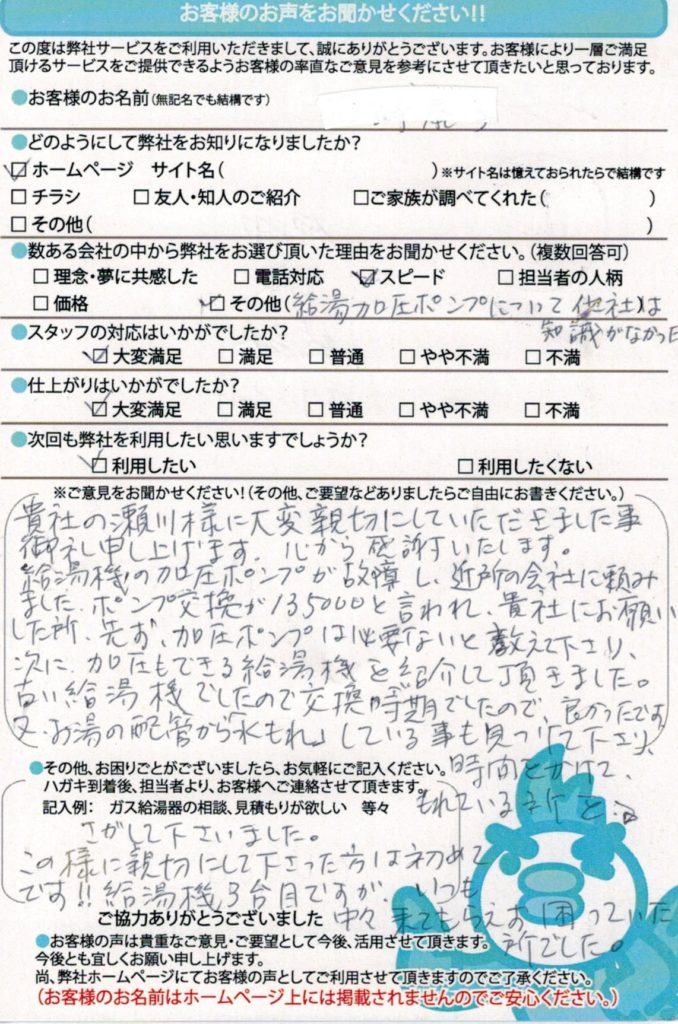 お客様のお声をお聞かせください!!
この度は弊社サービスをご利用いただきまして、誠にありがとうございます。お客様により一層ご満足
頂けるサービスをご提供できるようお客様の率直なご意見を参考にさせて頂きたいと思っております。
●お客様のお名前(無記名でも結構です)
●どのようにして弊社をお知りになりましたか?
☑ホームページ サイト名( )※サイト名は憶えておられたらで結構です
□チラシ □友人・知人のご紹介 □ご家族が調べてくれた( )
□その他( )
●数ある会社の中から弊社をお選び頂いた理由をお聞かせください。(複数回答可)
□理念・夢に共感した □電話対応 ☑スピード □担当者の人柄
□価格 ☑その他(給湯加圧ポンプについて他社)は
知識がなかった
●スタッフの対応はいかがでしたか?
☑大変満足 □満足 □普通 □やや不満 □不満
●仕上がりはいかがでしたか?
☑大変満足 □満足 □普通 □やや不満 □不満
●次回も弊社を利用したい思いますでしょうか?
☑利用したい □利用したくない
※ご意見をお聞かせください!(その他、ご要望などありましたらご自由にお書きください。)
貴社の瀬川様に大変親切にしていただきました事
御礼申し上げます。心から感謝いたします。
給湯機の加圧ポンプが故障し、近所の会社に頼み
ました。ポンプ交換が135000と言われ、貴社にお願い
した所、先ず、加圧ポンプは必要ないと教えて下さり、
次に、加圧もできる給湯機を紹介して頂きました。
古い給湯機でしたので交換時期でしたので、良かったです
又、お湯の配管から「水もれ」している事も見つけて下さり、
●その他、お困りごとがございましたら、お気軽にご記入ください。時間をかけて、
ハガキ到着後、担当者より、お客様へご連絡させて頂きます。
もれている所を
記入例: ガス給湯器の相談、見積もりが欲しい 等々
さがして下さいました。
この様に親切にして下さった方は初めて
です!!給湯機3台目ですが、いつも
ご協力ありがとうございました 中々来てもらえず困っていた
所でした。
●お客様の声は貴重なご意見・ご要望として今後、活用させて頂きます。
今後とも宜しくお願い申し上げます。
尚、弊社ホームページにてお客様の声としてご利用させて頂きますのでご了承ください。
(お客様のお名前はホームページ上には掲載されませんのでご安心ください。)